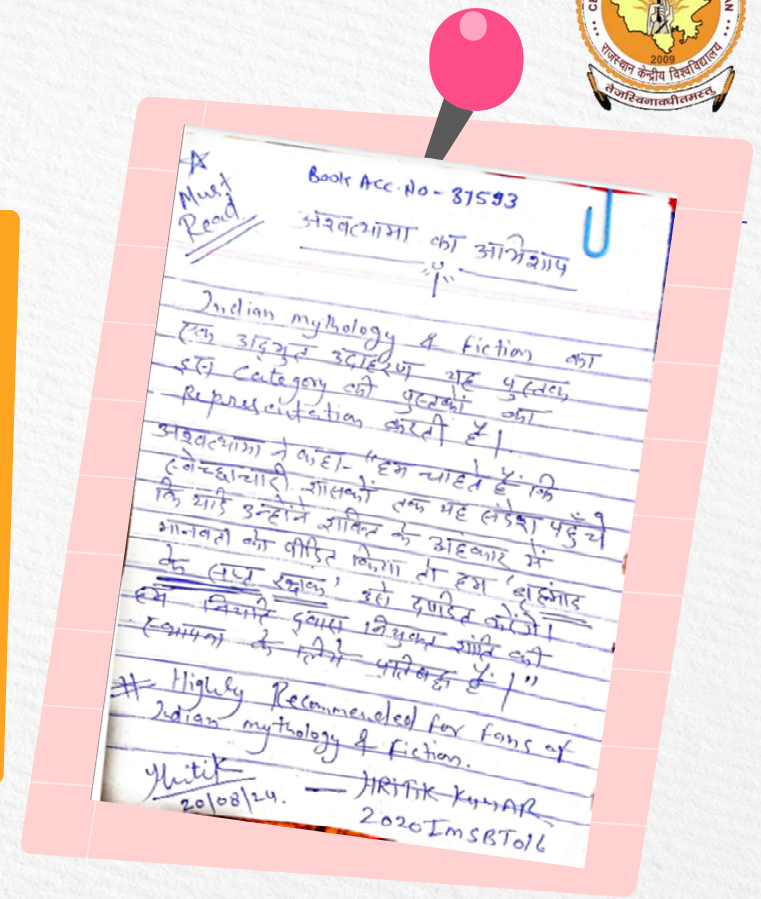 2009
राजस्थान केन्द्रीय विश्वविद्यालय
तेजस्विनावधीतमस्तु
Must
Read
Book Acc. No - 37593
अश्वत्थामा का अभिशाप
Indian mythology & fiction का
एक अद्भुत उदाहरण यह पुस्तक
इस Category की पुस्तकों का
Representation करती है|
अश्वत्थामा ने कहा- "हम चाहते हैं कि
स्वेच्छाचारी शासकों तक यह संदेश पहुँचे
कि यदि उन्होंने शक्ति के अहंकार में
मानवता को पीडित किया तो हम 'बृह्मांड
के सप्त रक्षक' उसे दण्डित करेंगे।
हम नियति द्वारा नियुक्त शांति की
स्थापना के लिये प्रतिबद्ध हैं|"
# Highly Recommended for fans of
Indian mythology & fiction.
Hritik
20/08/24. — HRITIK KUMAR
2020ImSBT016